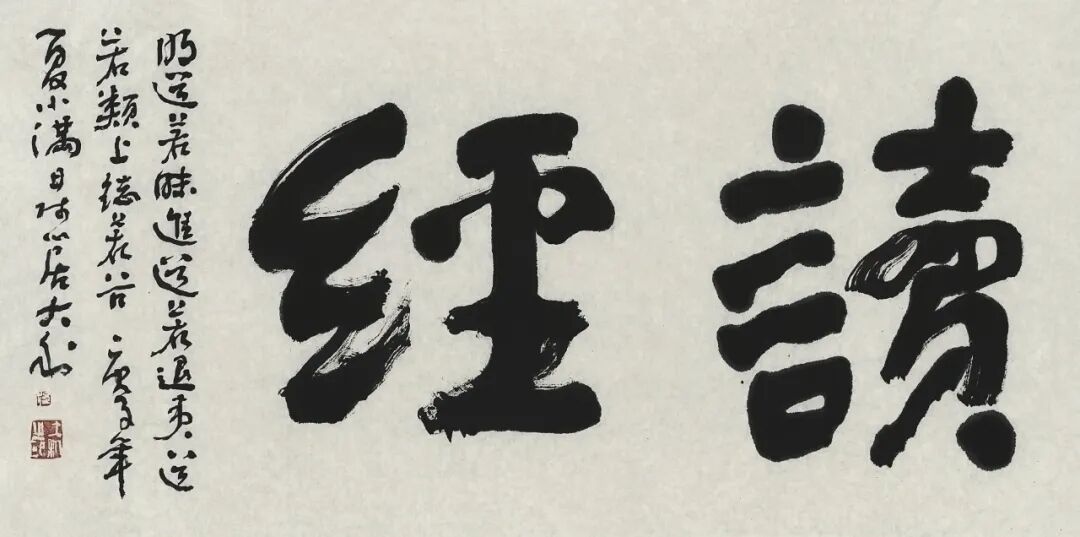 讀經
明道若昧進道若退夷道
若類上德若谷庚子年
夏小滿日於心居大利